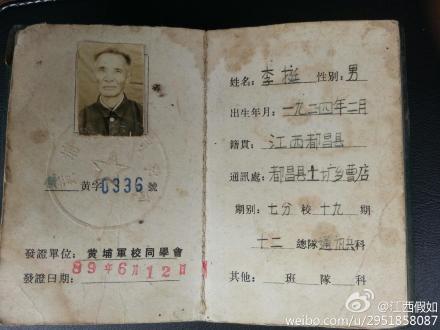 黄字0336號
發證單位：黄埔軍校同學會
發證日期：89年6月12日
姓名：李挺 性別：男
出生年月：一九二四年二月
籍貫：江西都昌县
通訊處：都昌县土坊乡曹店
期別：七分校十九期
十二總隊通讯兵科
其他： 班 隊 科
@江西假如
weibo.com/u/2951858087